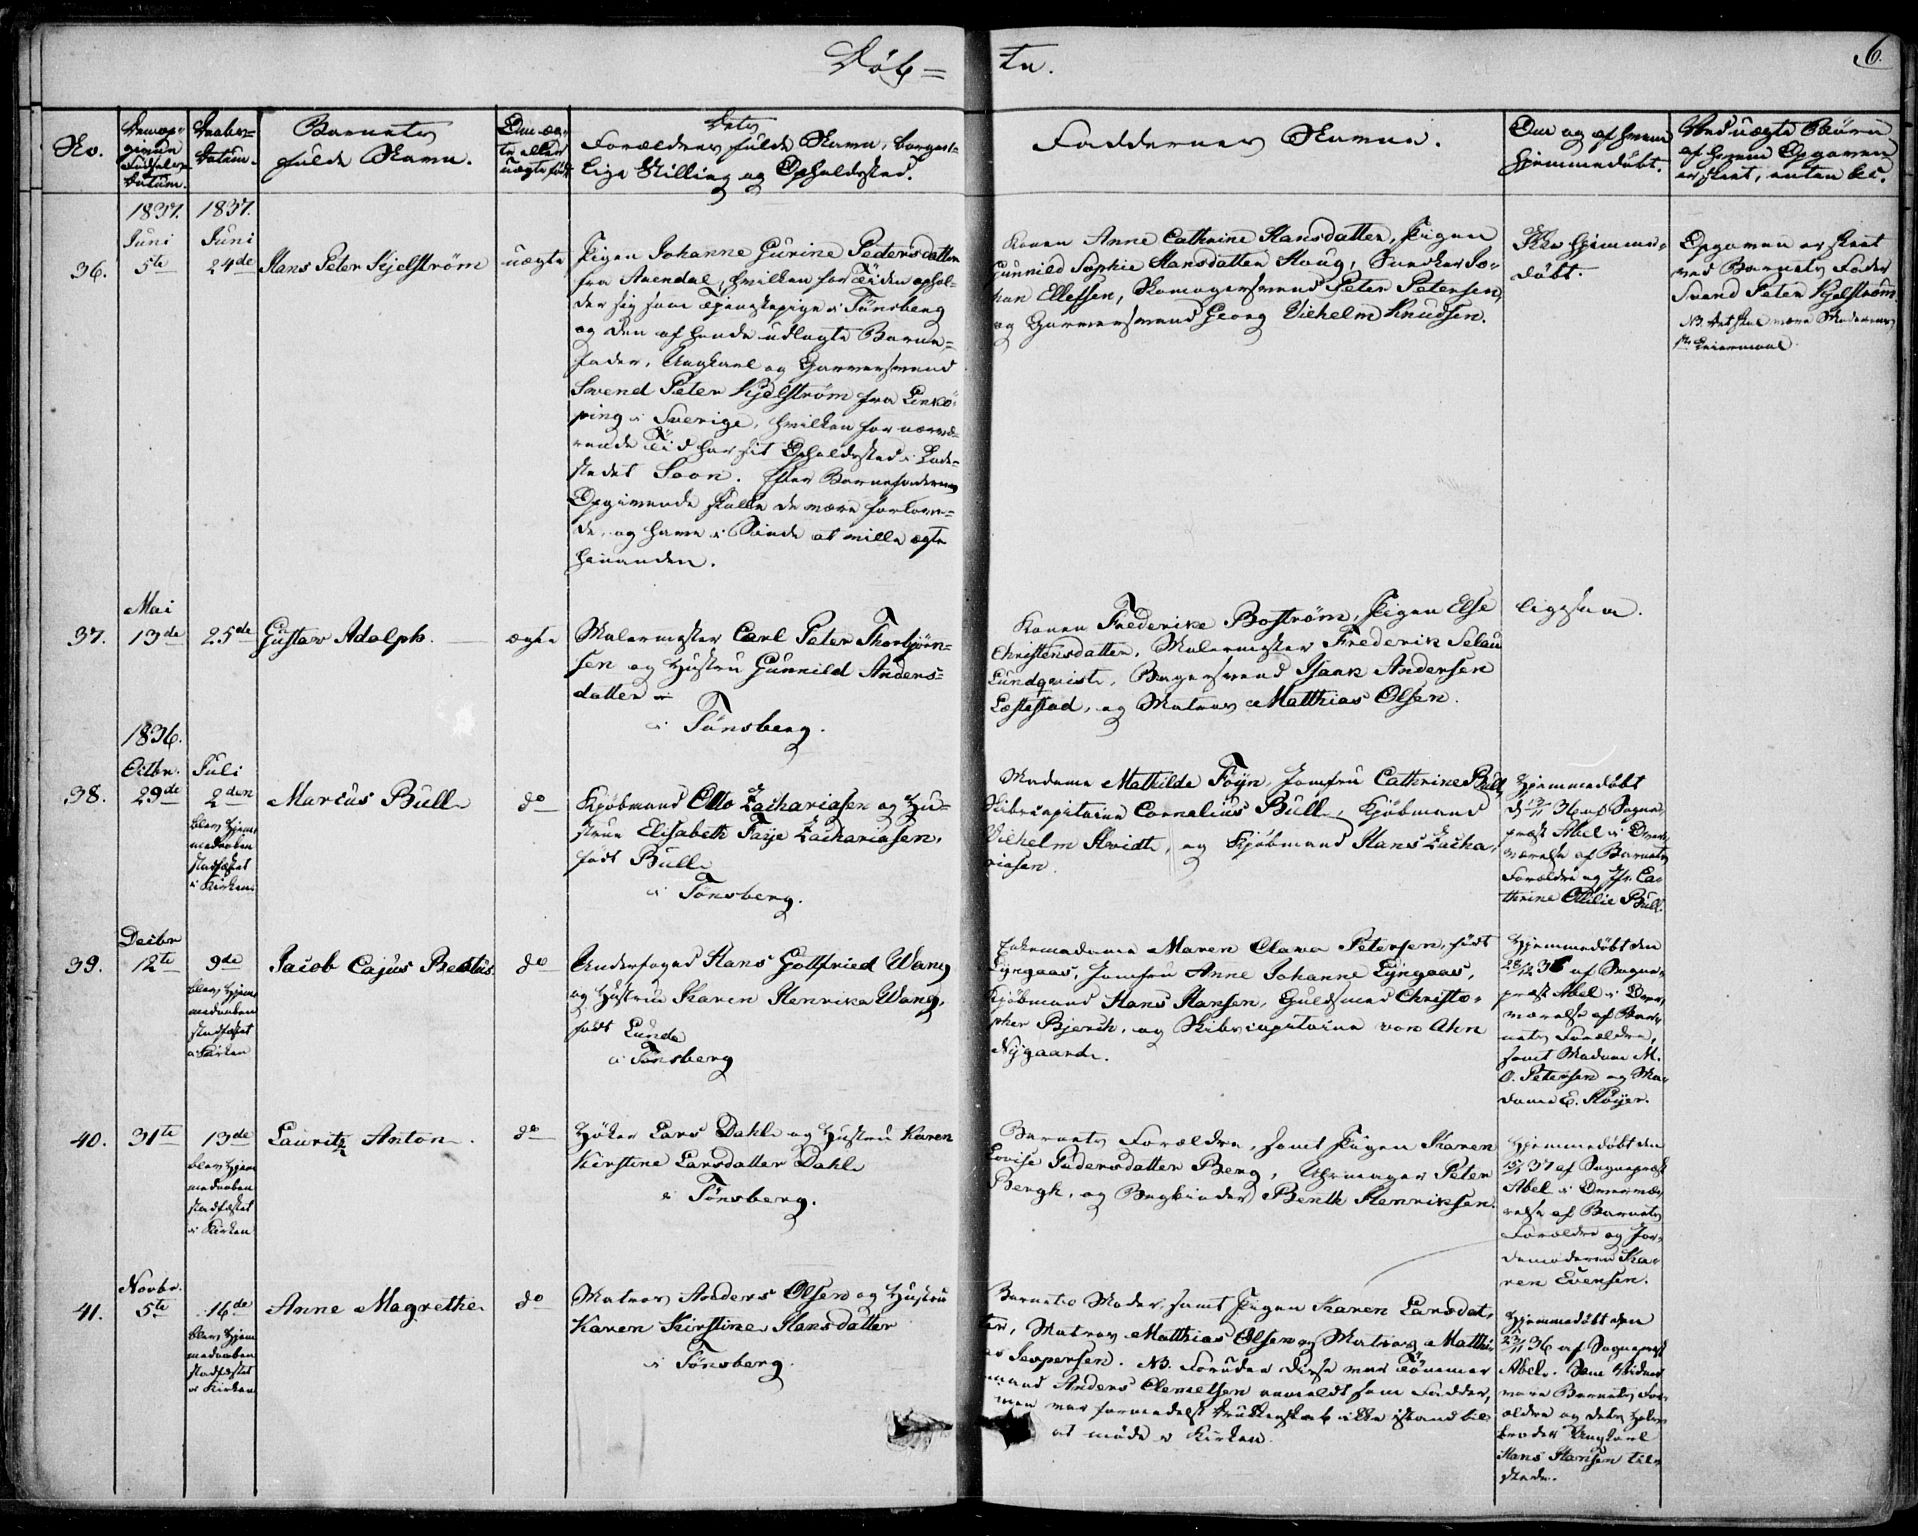 Døb=
te.
6.
No.
Den op-
givne
Fødsels-
Datum.
Daabs-
Datum.
Barnets
fulde Navn.
Om æg-
te eller
uægte født
Dets
Forældres fulde Navn, borger-
lige Stilling og Opholdssted.
Faddernes Navne.
Om og af hvem
hjemmedøbt.
Ved uægte Børn
af hvem Opgaven
er skeet, enten &c.
36.
1837.
Juni
5te
1837.
Juni
24de
Hans Peter Kjelstrøm
uægte
Pigen Johanne Gurine Pedersdatter
fra Arendal, hvilken for Tiden ophol-
der sig som Tjenestepige i Tønsberg
og den af hende udlagte Barne-
fader, Ungkarl og Garversvend
Svend Peter Kjelstrøm fra Linkø-
ping i Sverige, hvilken for nærvæ-
rende Tid har sit Opholdssted i Lade-
stedet Soon. Efter Barnefaderens
Opgivende skulle de være forlove-
de, og have i Sinde at ville ægte
hinanden.
Konen Anne Cathrine Hansdatter, Pigen
Gunnild Sophie Hansdatter Haug, Snedker Jo-
han Ellefsen, Skomagersvend Peter Petersen,
og Garversvend Georg Vilhelm Knudsen.
Ikke hjemme-
døbt
Opgaven er skeet
ved Barnets Fader
Svend Peter Kjelstrøm
NB. Det skal være Moderens
1ste Leiermaal.
37.
Mai
13de
25de
Gustav Adolph.
ægte
Malermester Carl Peter Thorbjørn-
sen og Hustru Gunnild Anders-
datter
i Tønsberg.
Konen Frederike Bostrøm, Pigen Else
Christensdatter, Malermester Frederik Selau
Lundqvist, Bagersvend Isaak Andersen
Læstestad, og Matros Matthias Olsen.
ligesaa.
38.
1836.
Octbr.
29de
Juli
2den
blev Hjem-
medaaben
stadfæstet
i Kirken.
Marius Bull
do
Kjøbmand Otto Zachariasen og Hu-
strue Elisabeth Faye Zachariasen,
født Bull
i Tønsberg.
Madame Mathilde Føyn, Jomfru Cathrine Bull,
Skibscapitaine Cornelius Bull, Kjøbmand
Vilhelm Hvidt, og Kjøbmand Hans Zacha-
riasen.
Hjemmedøbt
36 af Sogne-
præst Abel i Over-
værelse af Barnets
Forældre og Jfr. Ca-
thrine Otilie Bull.
39.
Decbr
12te
9de
blev Hjem-
medaaben
stadfæstet
i Kirken
Jacob Cajus
do
Underfoged Hans Gottfried Wang
og Hustru Karen Henrika Wang,
født Lunde
i Tønsberg
Enkemadame Maren Clava Petersen, født
Lyngaas, Jomfru Anne Johanne Lyngaas,
Kjøbmand Hans Hansen, Guldsmed Christo-
pher Bjerch, og Skibscapitaine von Ahn
Nygaard.
Hjemmedøbt den
28/12 36 af Sogne-
præst Abel i Over-
værelse af Bar-
nets Forældre,
samt Madame M.
C. Petersen og Ma-
dame E. Støyer.
40.
31te
13de
blev Hjem-
medaaben
stadfæstet
i Kirken
Lauritz Anton
do
Høker Lars Dahl og Hustru Karen
Kirstine Larsdatter Dahl
i Tønsberg.
Barnets Forældre, samt Pigen Karen
Lovise Pedersdatter Berg, Uhrmager Peter
Bergh, og Bogbinder Benth Henriksen.
Hjemmedøbt den
37 af Sognepræst
Abel i Overvæ-
relse af Barnets
Forældre og Jor-
demoderen Ka-
ren Evensen.
41.
Novbr.
5te
16de
blev Hjem-
medaaben
stadfæstet
i Kirken
Anne Magrethe
do
Matros Anders Olsen og Hustru
Karen Kirstine Hansdatter
i Tønsberg.
Barnets Moder, samt Pigen Karen Larsdat-
ter, Matros Matthias Olsen og Matros Matthi-
as Jespersen. NB. Foruden disse var Tømmer
mand Anders Clemetsen anmeldt som Fadder,
men var formedelst Drukkenskab ikke istand til
at møde i Kirken.
Hjemmedøbt den
23/11 36 af Sognepræst
Abel. Som Vidner
vare Barnets For-
ældre og dets
broder Ungkarl
Hans Hansen til-
stede.